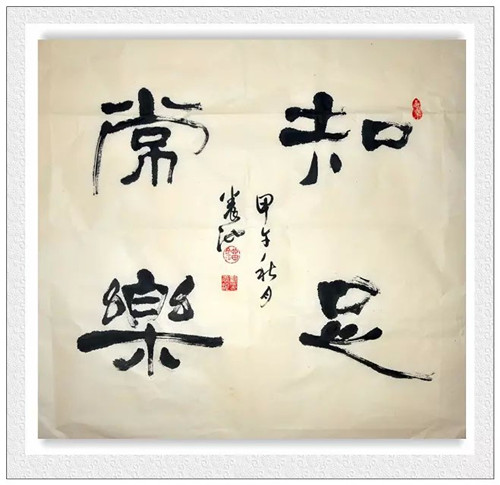 知足
常樂
甲午秋月